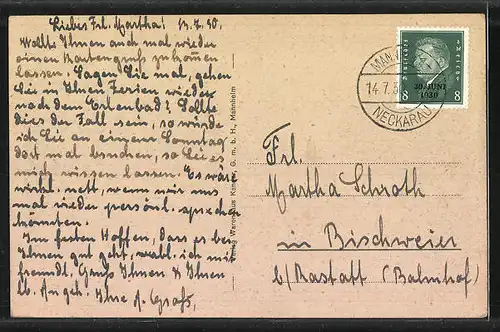 Liebes Frl. Martha! 13.7.30.
Wollte Ihnen auch mal wieder
einen Kartengruß zukommen
lassen. Sagen Sie mal, gehen
Sie in Ihren Ferien wieder
nach dem Erlenbad? Sollte
dies der Fall sein, so würde
ich Sie an einem Sonntag
dort mal besuchen, so Sie es
mich wissen lassen. Es wäre
wirkl. nett, wenn wir uns
mal wieder persönl. sprechen
könnten.
Im festen Hoffen, dass es bei
Ihnen gut geht, verbl. ich mit
freundl. Gruß Ihnen & Ihren
lb. Angeh. Ihre A. Graß,
Verlag Warenhaus Kander, G. m. b. H., Mannheim
Deutsches Reich
8 8
30. JUNI
1930
MANN
14.7.3
NECKARAU
Frl.
Martha Schroth
in Bischweier
b/Rastatt (Bahnhof)